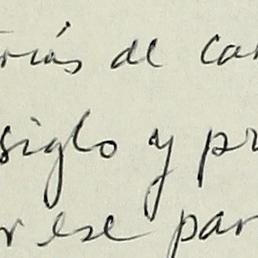 rias de ca
siglo y pr
r ese par